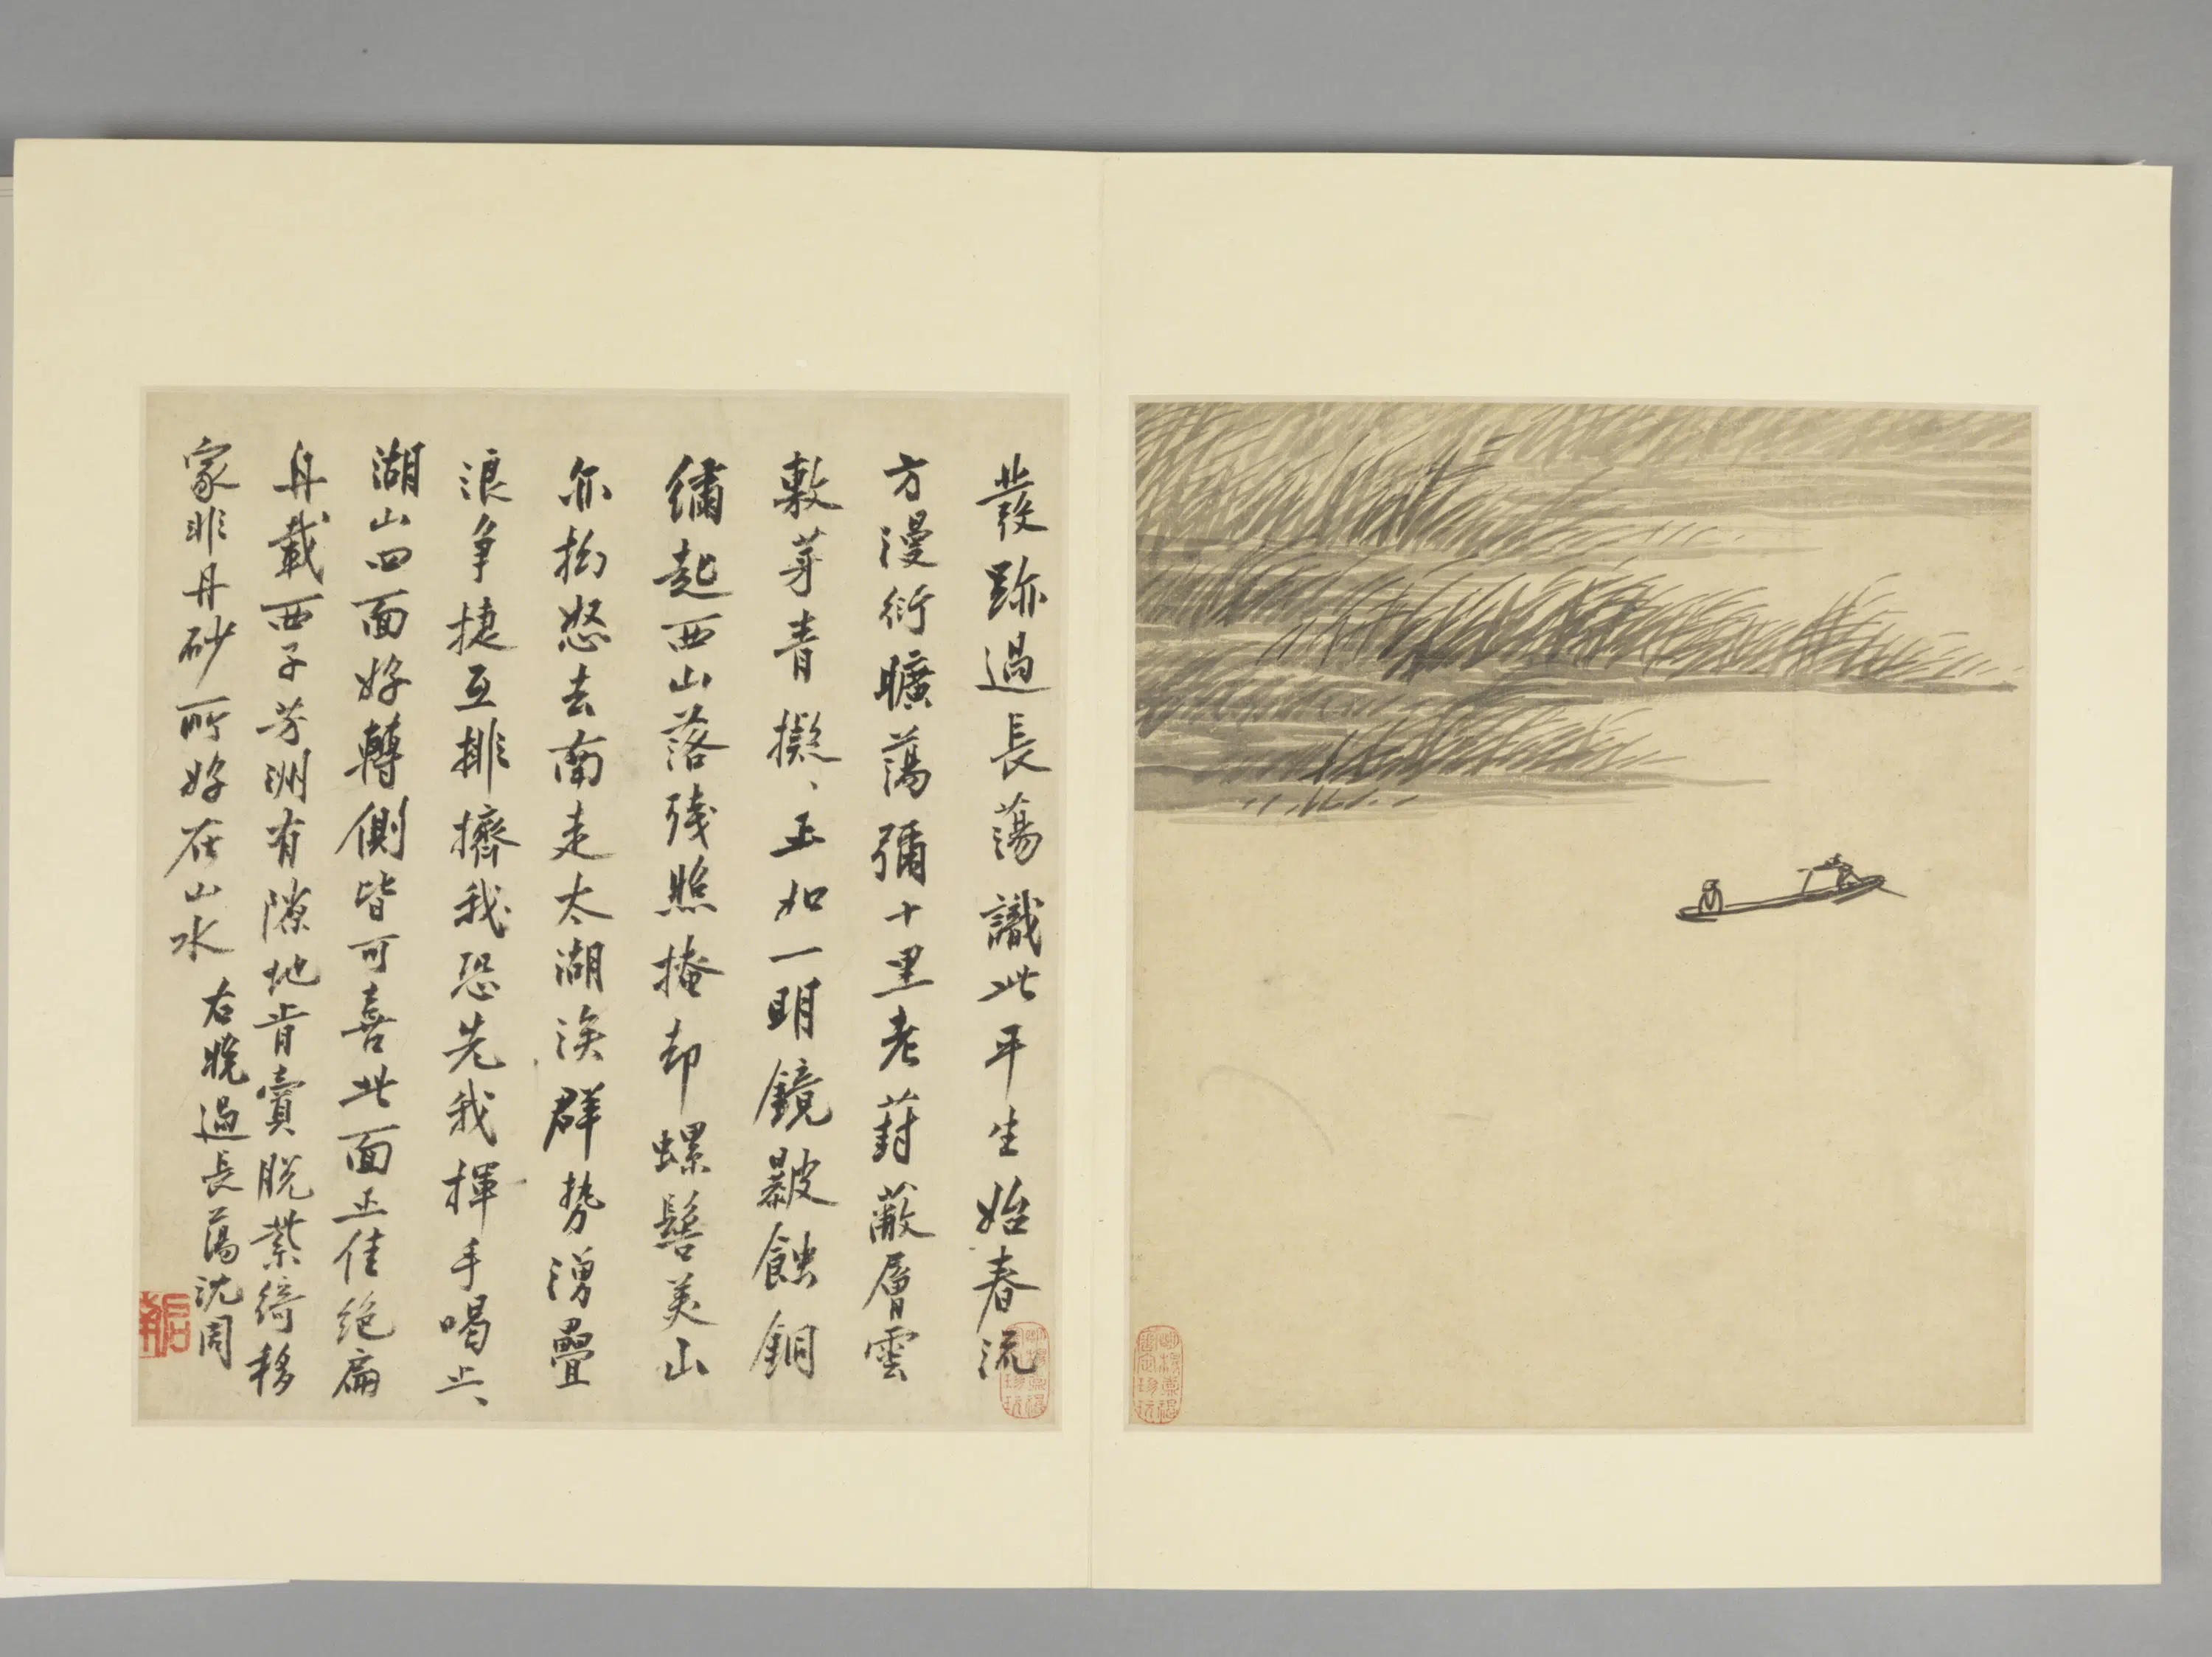 發跡過長蕩識此平生始春流
方漫衍曠蕩彌十里老葑蔽層雲
敷芽青擬、正如一明鏡皸蝕銅
繡起西山落殘照掩却螺髻美山
亦拗怒去南走太湖涘群勢湧疊
浪爭捷互排擠我恐先我揮手喝止、
湖山四面好轉側皆可喜此面正佳絕扁
舟載西子芳洲有隙地肯賣脫紫綺移
家非丹砂所好在山水
右晚過長蕩沈周
啟南